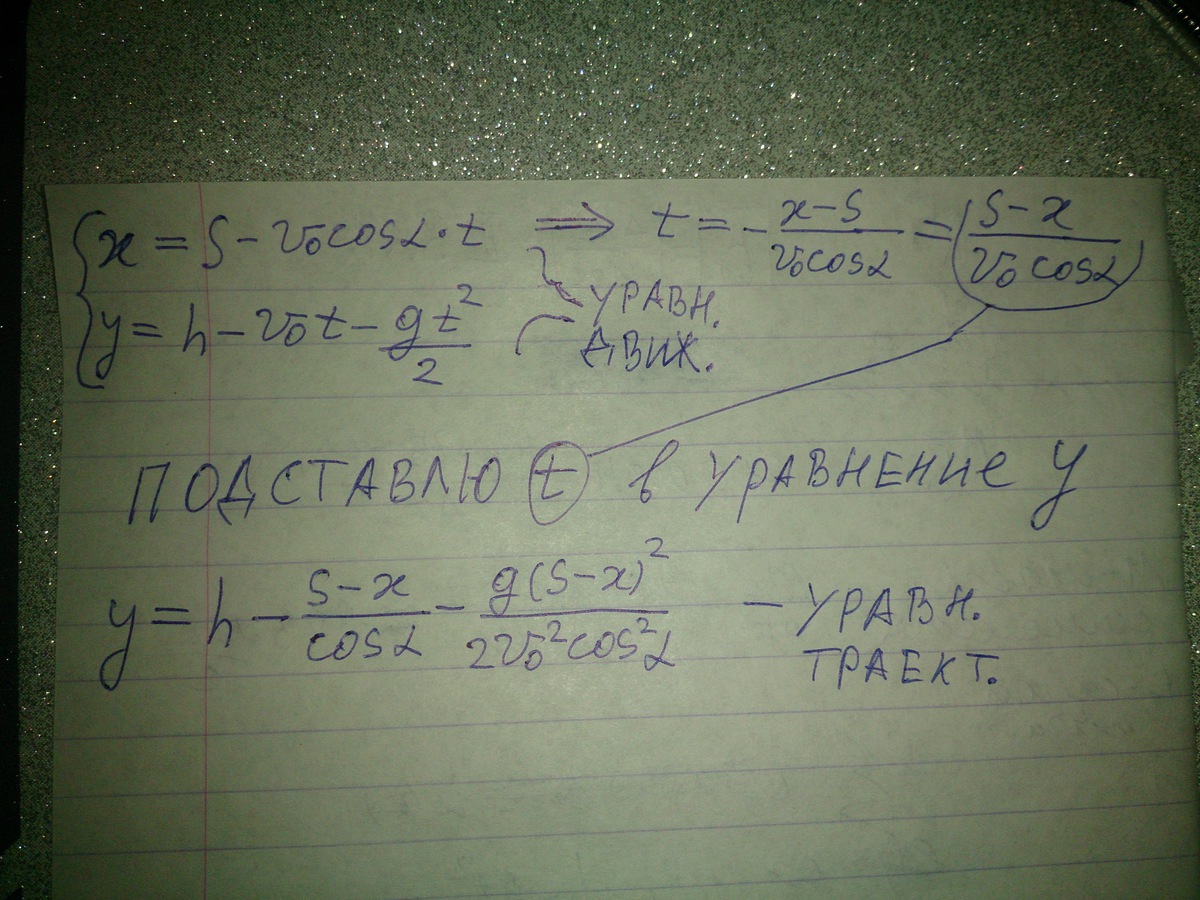 x = S - v₀cosα·t ⟹ t = - (x-S)/(v₀cosα) = (S-x)/(v₀ cosα)
y = h - v₀t - gt²/2
УРАВН.
ДВИЖ.
ПОДСТАВЛЮ t в УРАВНЕНИЕ y
y = h - (S-x)/(cosα) - g(S-x)²/(2v₀²cos²α) — УРАВН.
ТРАЕКТ.